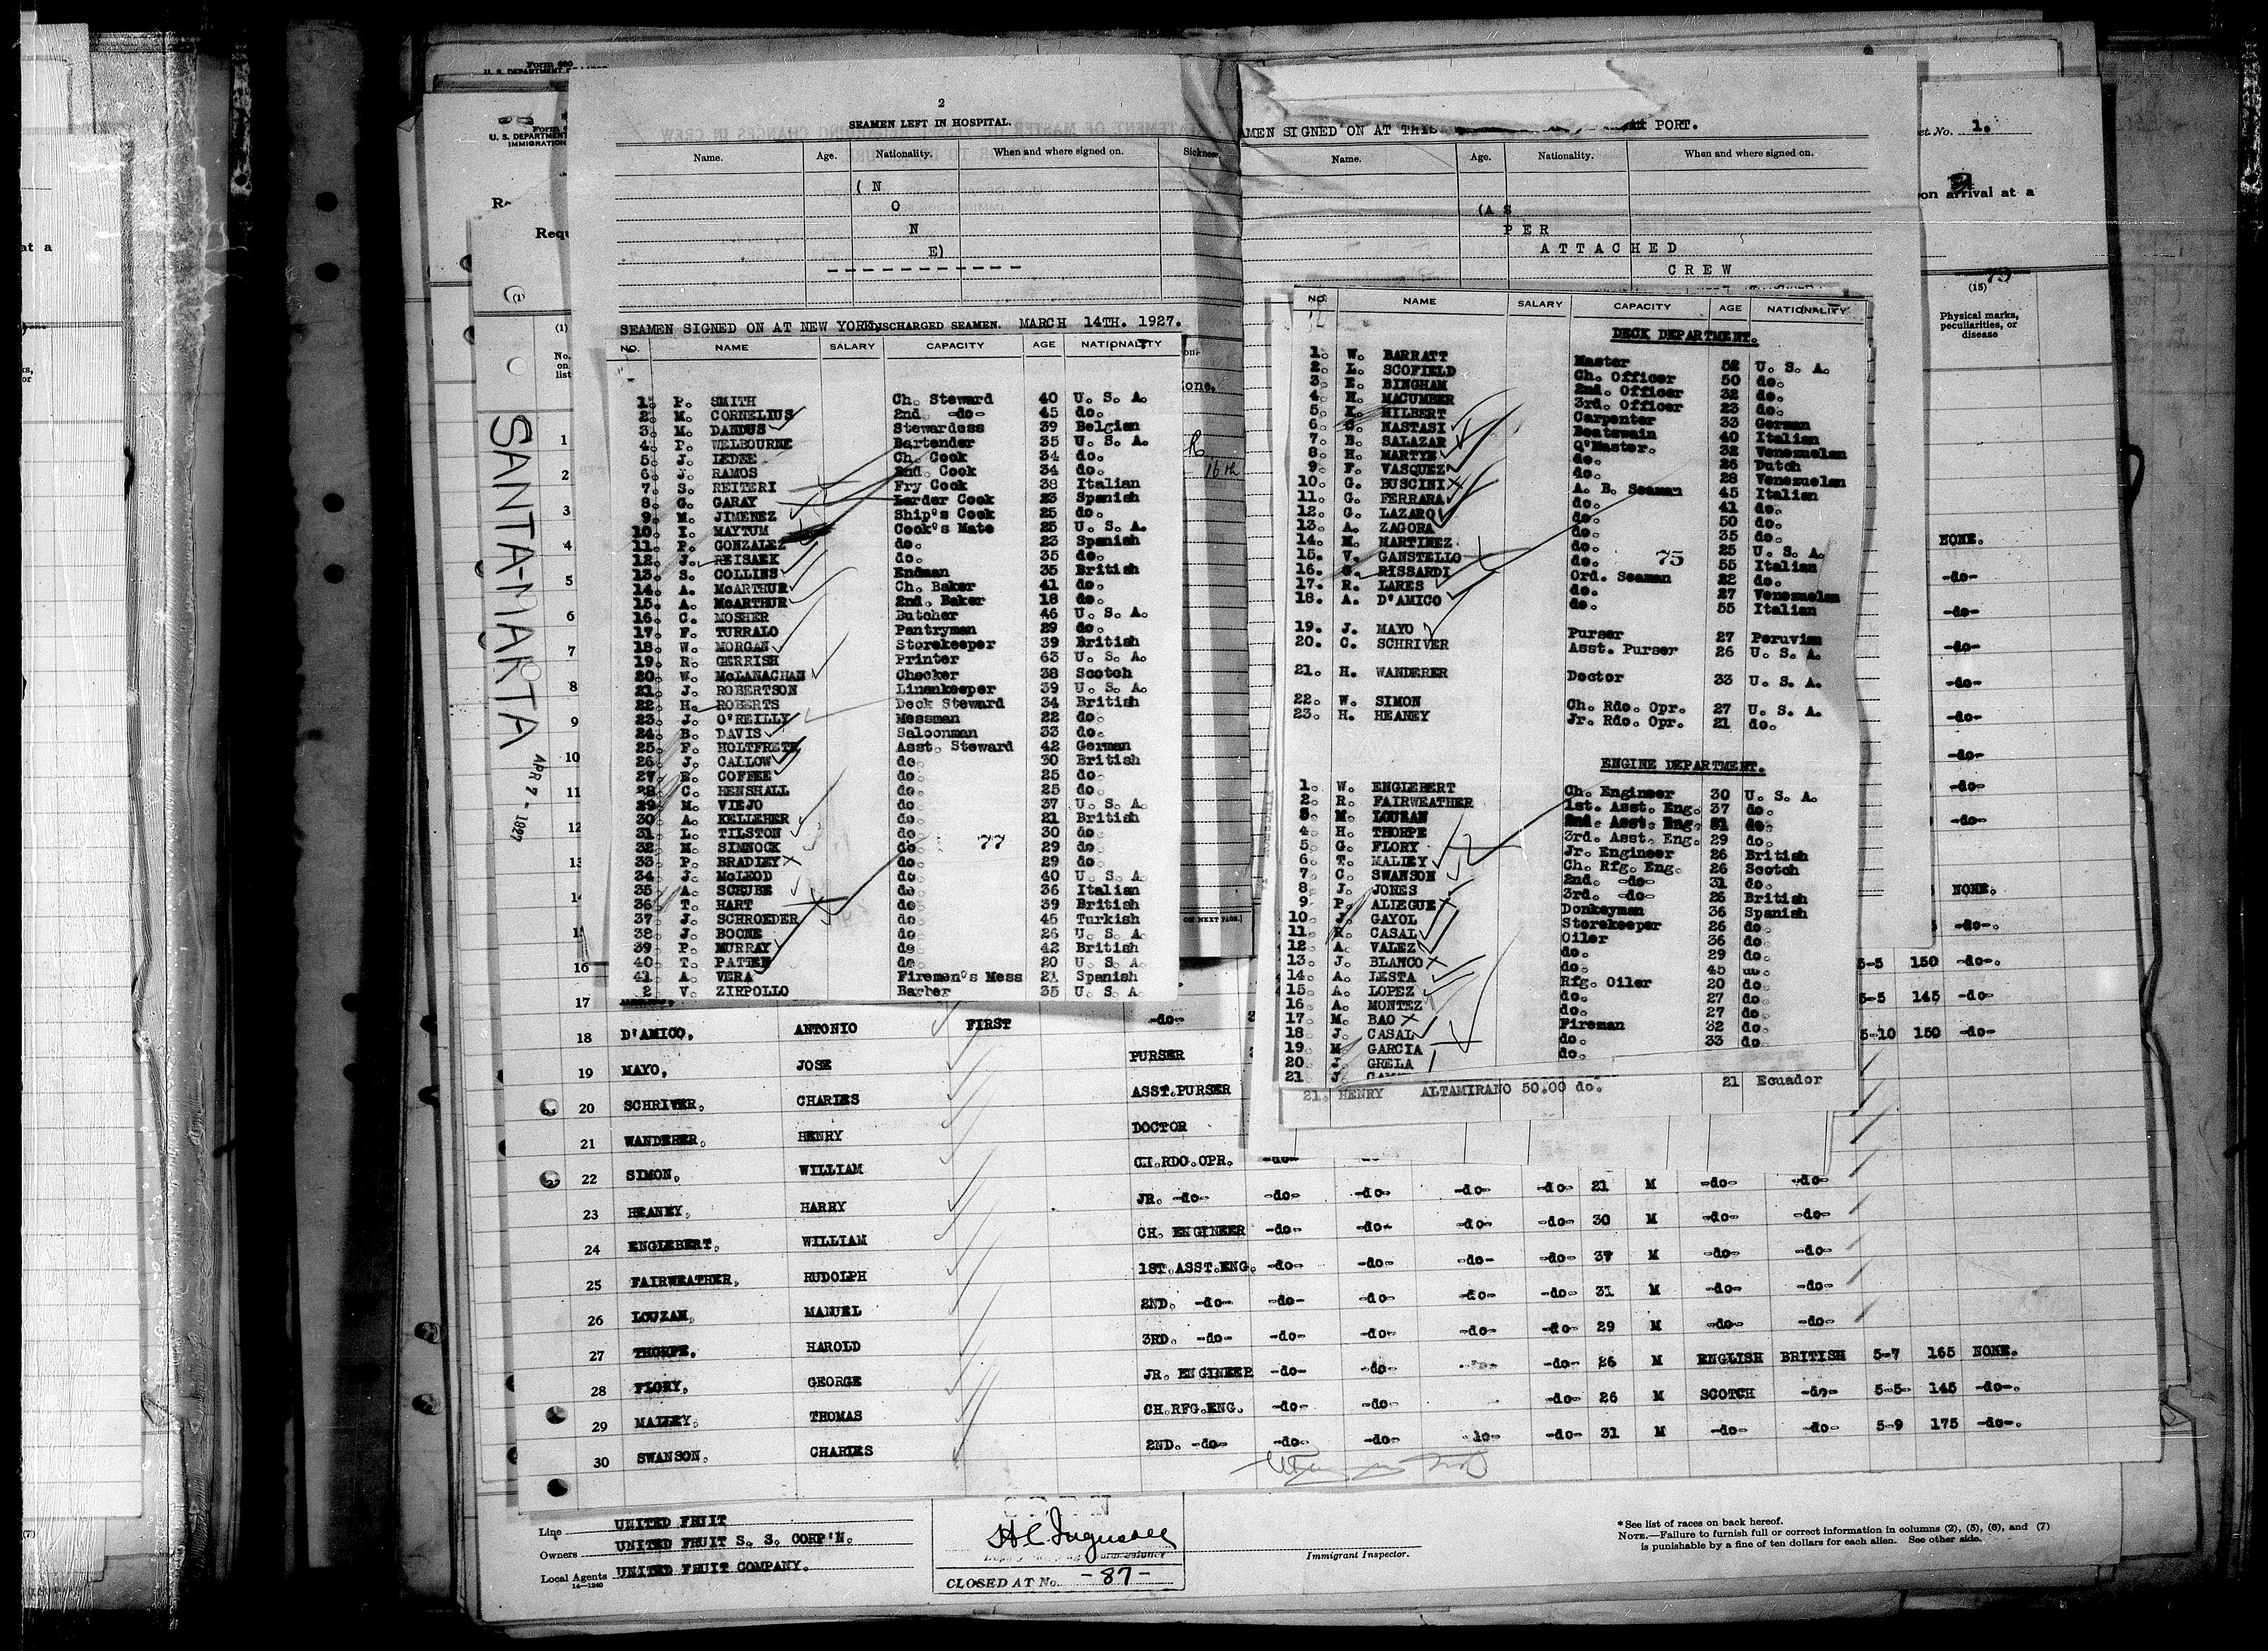 Form 680
U. S. DEPARTMENT
IMMIGRATION
at a
Requ
(1)
No. on list
SANTA-MARTA
APR 7 - 1927
2
SEAMEN LEFT IN HOSPITAL.
Name. Age. Nationality. When and where signed on. Sickness
( N
O
N
E)
SEAMEN SIGNED ON AT NEW YORK DISCHARGED SEAMEN. MARCH 14TH. 1927.
NO. NAME SALARY CAPACITY AGE NATIONALITY
1. P. SMITH Ch. Steward 40 U. S. A.
2. M. CORNELIUS 2nd. -do- 45 do.
3. M. DANDUS Stewardess 39 Belgian
4. P. WELBOURNE Bartender 35 U. S. A.
5. J. LEDEE Ch. Cook 34 do.
6. J. RAMOS 2nd. Cook 34 do.
7. S. REITERI Fry Cook 38 Italian
8. G. GARAY Larder Cook 23 Spanish
9. M. JIMENEZ Ship's Cook 25 do.
10. I. MAYTUM Cook's Mate 25 U. S. A.
11. P. GONZALEZ do. 23 Spanish
12. J. REISAEK do. 35 do.
13. S. COLLINS Endman 35 British
14. A. McARTHUR Ch. Baker 41 do.
15. A. McARTHUR 2nd. Baker 18 do.
16. C. MOSHER Butcher 46 U. S. A.
17. F. TURRALO Pantryman 29 do.
18. W. MORGAN Storekeeper 39 British
19. R. GERRISH Printer 63 U. S. A.
20. W. McLANACHAN Checker 38 Scotch
21. J. ROBERTSON Linenkeeper 39 U. S. A.
22. H. ROBERTS Deck Steward 34 British
23. J. O'REILLY Messman 22 do.
24. B. DAVIS Saloonman 33 do.
25. F. HOLTFRETE Asst. Steward 42 German
26. J. CALLOW do. 30 British
27. E. COFFEE do. 25 do.
28. C. HENSHALL do. 25 do.
29. M. VIEJO do. 37 U. S. A.
30. A. KELLEHER do. 21 British
31. L. TILSTON do. 30 do.
32. M. SIMNOCK do. 29 do.
33. P. BRADLEY do. 29 do.
34. J. McLEOD do. 40 U. S. A.
35. A. SCHUBE do. 36 Italian
36. T. HART do. 39 British
37. J. SCHROEDER do. 45 Turkish
38. J. BOONE do. 26 U. S. A.
39. P. MURRAY do. 42 British
40. T. PATTEN do. 20 U. S. A.
41. A. VERA Firemen's Mess 21 Spanish
2. V. ZIRPOLLO Barber 35 U. S. A.
77
16th
AMEN SIGNED ON AT THIS PORT.
Name. Age. Nationality. When and where signed on.
(A S
P E R
A T T A C H E D
C R E W
NO. NAME SALARY CAPACITY AGE NATIONALITY
DECK DEPARTMENT.
1. W. BARRATT Master 52 U. S. A.
2. L. SCOFIELD Ch. Officer 50 do.
3. E. BINGHAM 2nd. Officer 32 do.
4. H. MACUMBER 3rd. Officer 23 do.
5. K. HILBERT Carpenter 33 German
6. G. NASTASI Boatswain 40 Italian
7. B. SALAZAR Q'Master. 32 Venezuelan
8. H. MARTYN do. 26 Dutch
9. F. VASQUEZ do. 28 Venezuelan
10. G. BUSCINI A. B. Seaman 45 Italian
11. G. FERRARA do. 41 do.
12. G. LAZARO do. 50 do.
13. A. ZAGORA do. 35 do.
14. M. MARTINEZ do. 25 U. S. A.
15. V. GANSTELLO do. 55 Italian
16. G. RISSARDI Ord. Seaman 22 do.
17. R. LARES do. 27 Venezuelan
18. A. D'AMICO do. 55 Italian
75
19. J. MAYO Purser 27 Peruvian
20. C. SCHRIVER Asst. Purser 26 U. S. A.
21. H. WANDERER Doctor 33 U. S. A.
22. W. SIMON Ch. Rdo. Opr. 27 U. S. A.
23. H. HEANEY Jr. Rdo. Opr. 21 do.
ENGINE DEPARTMENT.
1. W. ENGLEBERT Ch. Engineer 30 U. S. A.
2. R. FAIRWEATHER 1st. Asst. Eng. 37 do.
3. M. LOUZAN 2nd. Asst. Eng. 31 do.
4. H. THORPE 3rd. Asst. Eng. 29 do.
5. G. FLORY Jr. Engineer 26 British
6. T. MALLEY Ch. Rfg. Eng. 26 Scotch
7. C. SWANSON 2nd. -do- 31 do.
8. J. JONES 3rd. -do- 26 British
9. P. ALIEGUE Donkeyman 36 Spanish
10. J. GAYOL Storekeeper 26 do.
11. R. CASAL Oiler 36 do.
12. A. VALEZ do. 29 do.
13. J. BLANCO do. 45 do.
14. A. LESTA Rfg. Oiler 20 do.
15. A. LOPEZ do. 27 do.
16. A. MONTEZ do. 27 do.
17. M. BAO Fireman 32 do.
18. J. CASAL do. 33 do.
19. M. GARCIA do.
20. J. GRELA
21 J.
21. HENRY ALTAMIRANO 50.00 do. 21 Ecuador
et No. 1.
on arrival at a
(15)
Physical marks, peculiarities, or disease
NONE.
-do-
-do-
-do-
-do-
-do-
-do-
-do-
-do-
NONE.
-do-.
5-5 150 -do-.
5-5 145 -do-
5-10 150 -do-
18 D'AMICO, ANTONIO FIRST -do-
19 MAYO, JOSE PURSER
20 SCHRIVER, CHARLES ASST.PURSER
21 WANDERER, HENRY DOCTOR
22 SIMON, WILLIAM CH.RDO.OPR. -do-
23 HEANEY, HARRY JR. -do- -do- -do- -do- -do- 21 M -do- -do-
24 ENGLEBERT, WILLIAM CH. ENGINEER -do- -do- -do- -do- 30 M -do- -do-
25 FAIRWEATHER, RUDOLPH 1ST.ASST.ENG. -do- -do- -do- -do- 37 M -do- -do-
26 LOUZAN, MANUEL 2ND. -do- -do- -do- -do- -do- 31 M -do- -do-
27 THORPE, HAROLD 3RD. -do- -do- -do- -do- -do- 29 M -do- -do-
28 FLORY, GEORGE JR. ENGINEER -do- -do- -do- 26 M ENGLISH BRITISH 5-7 165 NONE.
29 MALLEY, THOMAS CH.RFG.ENG. -do- -do- -do- 26 M SCOTCH -do- 5-5- 145 -do-.
30 SWANSON, CHARLES 2ND. -do- -do- -do- -do- -do- 31 M -do- -do- 5-9 175 -do-.
Line UNITED FRUIT
Owners UNITED FRUIT S. S. CORP'N.
Local Agents UNITED FRUIT COMPANY.
14-1240
CLOSED AT No. -87-
Immigrant Inspector.
* See list of races on back hereof.
NOTE.—Failure to furnish full or correct information in columns (2), (5), (6), and (7)
is punishable by a fine of ten dollars for each alien. See other side.